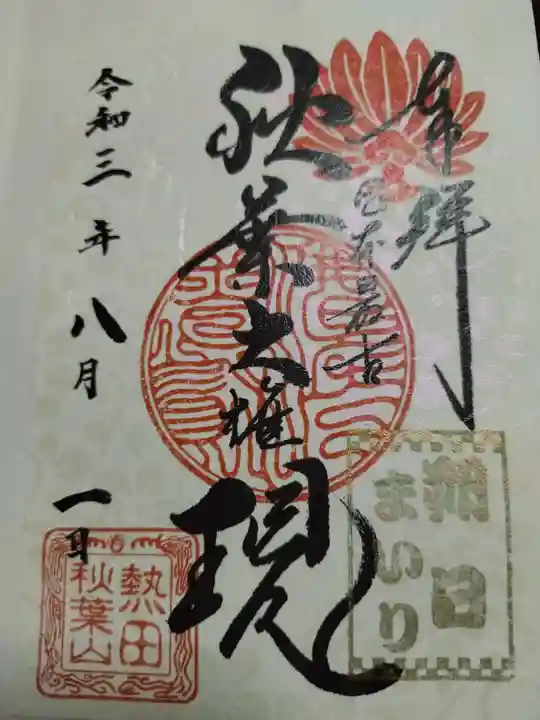 奉拝
日本最古
秋葉大権現
令和三年八月一日
朔日
まいり
熱田
秋葉山